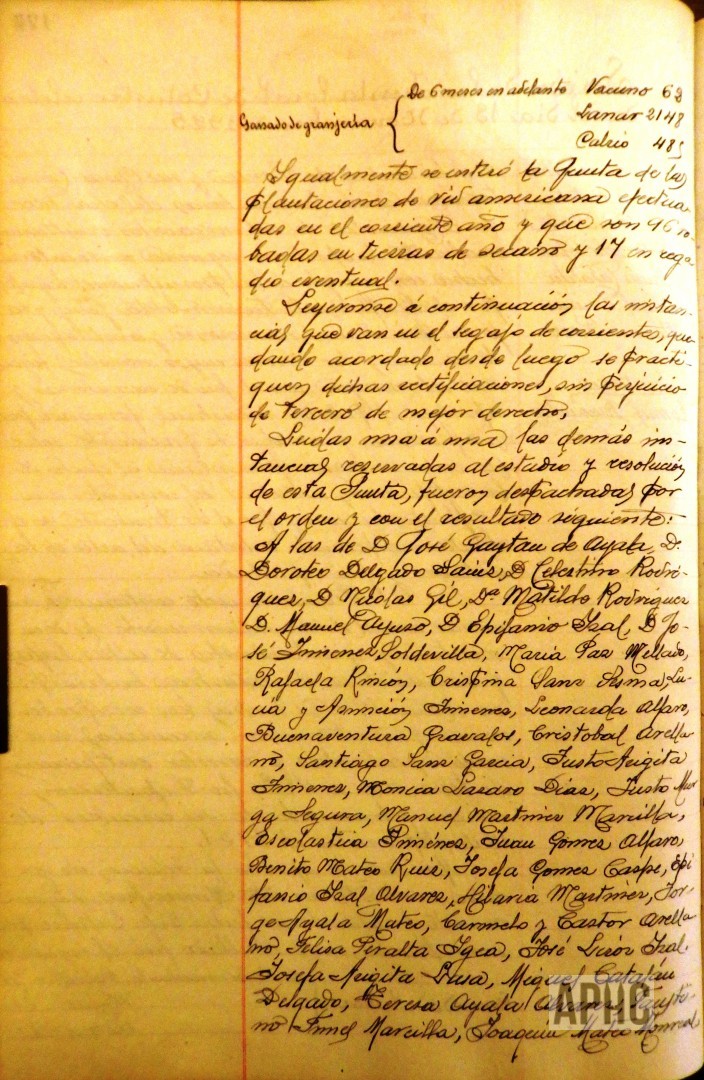 De 6 meses en adelante Vacuno 62
Ganado de granjería { Lanar 2148
Cabrio 48
Igualmente se enteró la Junta de las
plantaciones de vid americana efectua-
das en el corriente año y que son 96 ro-
badas en tierras de secano y 17 en rega-
dio eventual.
Leyeronse á continuación las instan-
cias que van en el legajo de corrientes, que-
dando acordado desde luego se practi-
quen dichas rectificaciones, sin perjuicio
de tercero de mejor derecho,
Leidas una á una las demás ins-
tancias reservadas al estudio y resolución
de esta Junta, fueron despachadas por
el orden y con el resultado siguiente:
A las de D José Gaytan de Ayala, D.
Doroteo Delgado Sainz, D Celestino Rodri-
guez, D Nicolas Gil, Dª Matilde Rodriguez
D. Manuel Ayuso, D Epifanio Izal, D Jo-
sé Jimenez Soldevilla, Maria Paz Mellado,
Rafaela Rincón, Crispina Sanz Sesma, Lu-
cia y Asunción Jimenez, Leonarda Alfaro,
Buenaventura Gravalos, Cristobal Arella-
no, Santiago Sanz Garcia, Justo Augita
Jimenez, Monica Lazaro Diaz, Justo Mur-
ga Segura, Manuel Martinez Marcilla,
Escolastica Jiménez, Juan Gomez Alfaro,
Benito Mateo Ruiz, Josefa Gomez Caspe, Epi
fanio Izal Alvarez, Hilaria Martinez, Jor-
ge Ayala Mateo, Carmelo y Castor Arella-
no, Felisa Peralta Igea, José Izal.
Josefa Augita Miguel Catalán
Delgado, Teresa Ayala Alvarez, Fausti-
no Marcilla, Joaquin Monreal
APHC